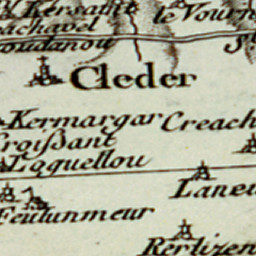 Kersaint
le Vourn
achavel
oudanou
St
Cleder
Kermargar Creach
Croissant
Loguellou
Laneu
Feulunmeur
Kerlizen